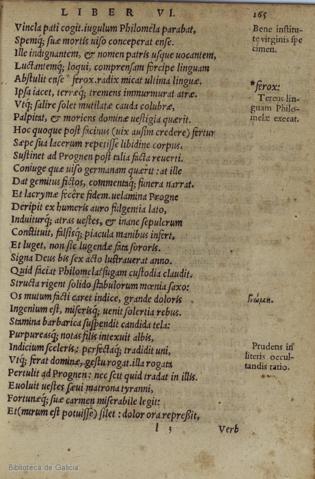 LIBER VI. 165
Vincla pati cogit. iugulum Philomela parabat,
Spemq́; suæ mortis uiso conceperat ense.
Ille indignantem, & nomen patris usque uocantem,
Luctantemq́; loqui, comprensam forcipe linguam
Abstulit ense * ferox. radix micat ultima linguæ.
Ipsa iacet, terræq́; tremens immurmurat atræ.
Vtq́; salire solet mutilatæ cauda colubræ,
Palpitat, & moriens dominæ uestigia quærit.
Hoc quoque post facinus (uix ausim credere) fertur
Sæpe sua lacerum repetisse libidine corpus.
Sustinet ad Prognen post talia facta reuerti.
Coniuge quæ uiso germanam quærit: at ille
Dat gemitus fictos, commentaq́; funera narrat.
Et lacrymæ fecêre fidem. uelamina Progne
Deripit ex humeris auro fulgentia lato,
Induiturq́; atras uestes, & inane sepulcrum
Constituit, falsisq́; piacula manibus infert,
Et luget, non sic lugendæ fata sororis.
Signa Deus bis sex acto lustrauerat anno.
Quid faciat Philomela? fugam custodia claudit.
Structa rigent solido stabulorum mœnia saxo:
Os mutum facti caret indice, grande doloris
Ingenium est, miserisq́; uenit solertia rebus.
Stamina barbarica suspendit candida tela:
Purpureasq́; notas filis intexuit albis,
Indicium sceleris: perfectaq́; tradidit uni,
Vtq́; ferat dominæ, gestu rogat. illa rogata
Pertulit ad Prognen: nec scit quid tradat in illis.
Euoluit uestes sæui matrona tyranni,
Fortunæq́; suæ carmen miserabile legit:
Et (mirum est potuisse) silet: dolor ora repreßit,
l 3 Verb
Bene institu-
tæ virginis spe
cimen.
*ferox:
Tereus lin-
guam Philo-
melæ execat.
Γνώμη.
Prudens in
literis occul-
tandis ratio.
Biblioteca de Galicia